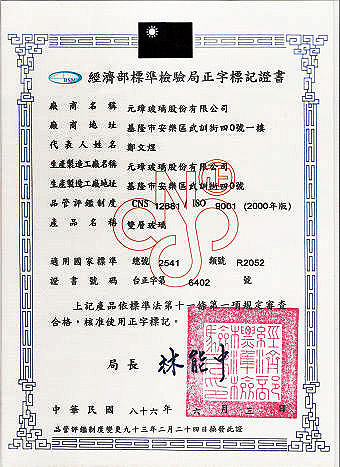 BSMI 經濟部標準檢驗局正字標記證書
廠商名稱 元璋玻璃股份有限公司
廠商地址 基隆市安樂區武訓街四0號一樓
代表人姓名 鄭文煜
生產製造工廠名稱 元璋玻璃股份有限公司
生產製造工廠地址 基隆市安樂區武訓街四0號
品管評鑑制度 CNS 12681 ISO 9001 (2000年版)
產品名稱 雙層玻璃
適用國家標準 總號 2541 類號 R2052
證書號碼 台正字第 6402 號
上記產品依標準法第十一條第一項規定審查
合格，核准使用正字標記。
局長 林能中
經濟部
標準檢
驗局印
中華民國 八十六年 六月 三日
品管評鑑制度變更九十三年二月二十四日換發此證